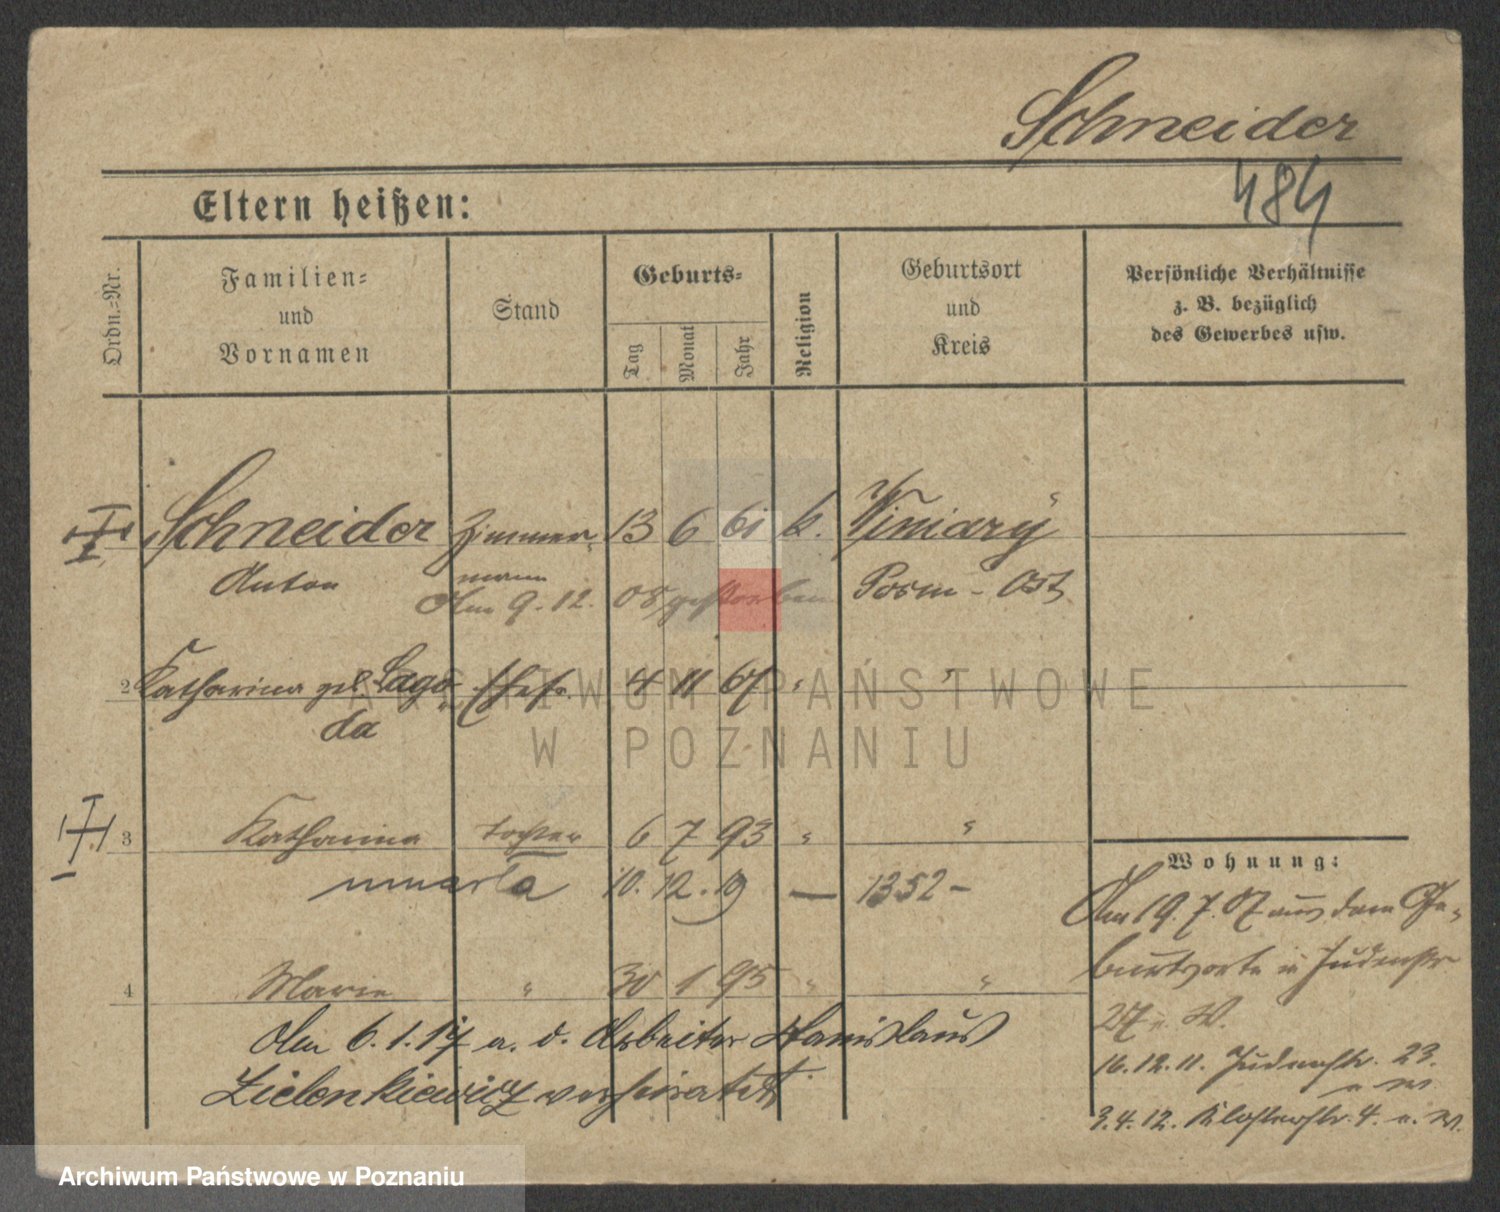 Schneider
484
Eltern heißen:
Ordn.-Nr.
Familien-
und
Vornamen
Stand
Geburts-
Tag
Monat
Jahr
Religion
Geburtsort
und
Kreis
Persönliche Verhältnisse
z. B. bezüglich
des Gewerbes usw.
Schneider Zimmer- 13 6 61 k. Winiary
Anton mann Posen - Ost
Am 9. 12. 08 gestorben
2 Katharina geb. Lago- Ehefr. 4 11 67 " "
da
ARCHIWUM PAŃSTWOWE
W POZNANIU
3 Katharina Tochter 6 7 93 " "
umarła 10. 12. 19 — 1352 -
4 Marie " 30 1 95 " "
Am 6. 1. 17 a. d. Arbeiter Stanislaus
Zielenkiewicz verheiratet.
Wohnung:
Am 19. 7. 07 aus dem Ge-
burtsorte n Judenstr
27 e. W.
16. 12. 11. Judenstr. 23.
e. W.
3. 4. 12. Klosterstr. 4. e. W.
Archiwum Państwowe w Poznaniu